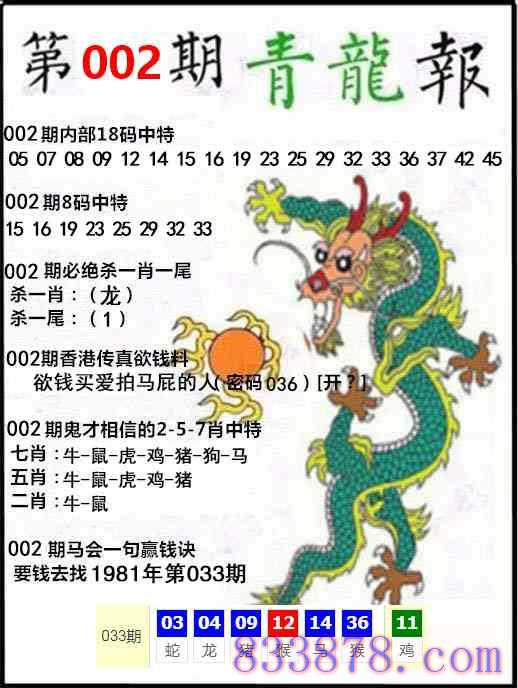 第002期青龍報
002期内部18码中特
05 07 08 09 12 14 15 16 19 23 25 29 32 33 36 37 42 45
002期8码中特
15 16 19 23 25 29 32 33
002期必绝杀一肖一尾
杀一肖：（龙）
杀一尾：（1）
002期香港传真欲钱料
欲钱买爱拍马屁的人(密码036）[开？]
002期鬼才相信的2-5-7肖中特
七肖：牛-鼠-虎-鸡-猪-狗-马
五肖：牛-鼠-虎-鸡-猪
二肖：牛-鼠
002期马会一句赢钱诀
要钱去找1981年第033期
033期 03 04 09 12 14 36 11
蛇 龙 猪 猴 马 猴 鸡
833878.com